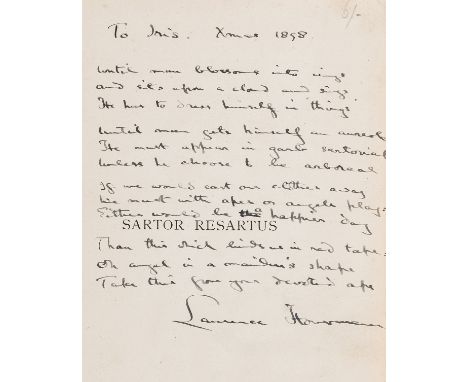 6/-
To Iris. Xmas 1898.
Until man blossoms into wings
and sits upon a cloud and sings
He has to dress himself in things
Until man gets himself an aureol
He must appear in garb sartorial
Unless he choose to be arboreal
If we would cast our clothes away
We must with apes or angels play:
Either would be a happier day
SARTOR RESARTUS
Than this which binds us in red tape:
Oh angel in a maiden's shape
Take this from your devoted ape
Laurence Housman